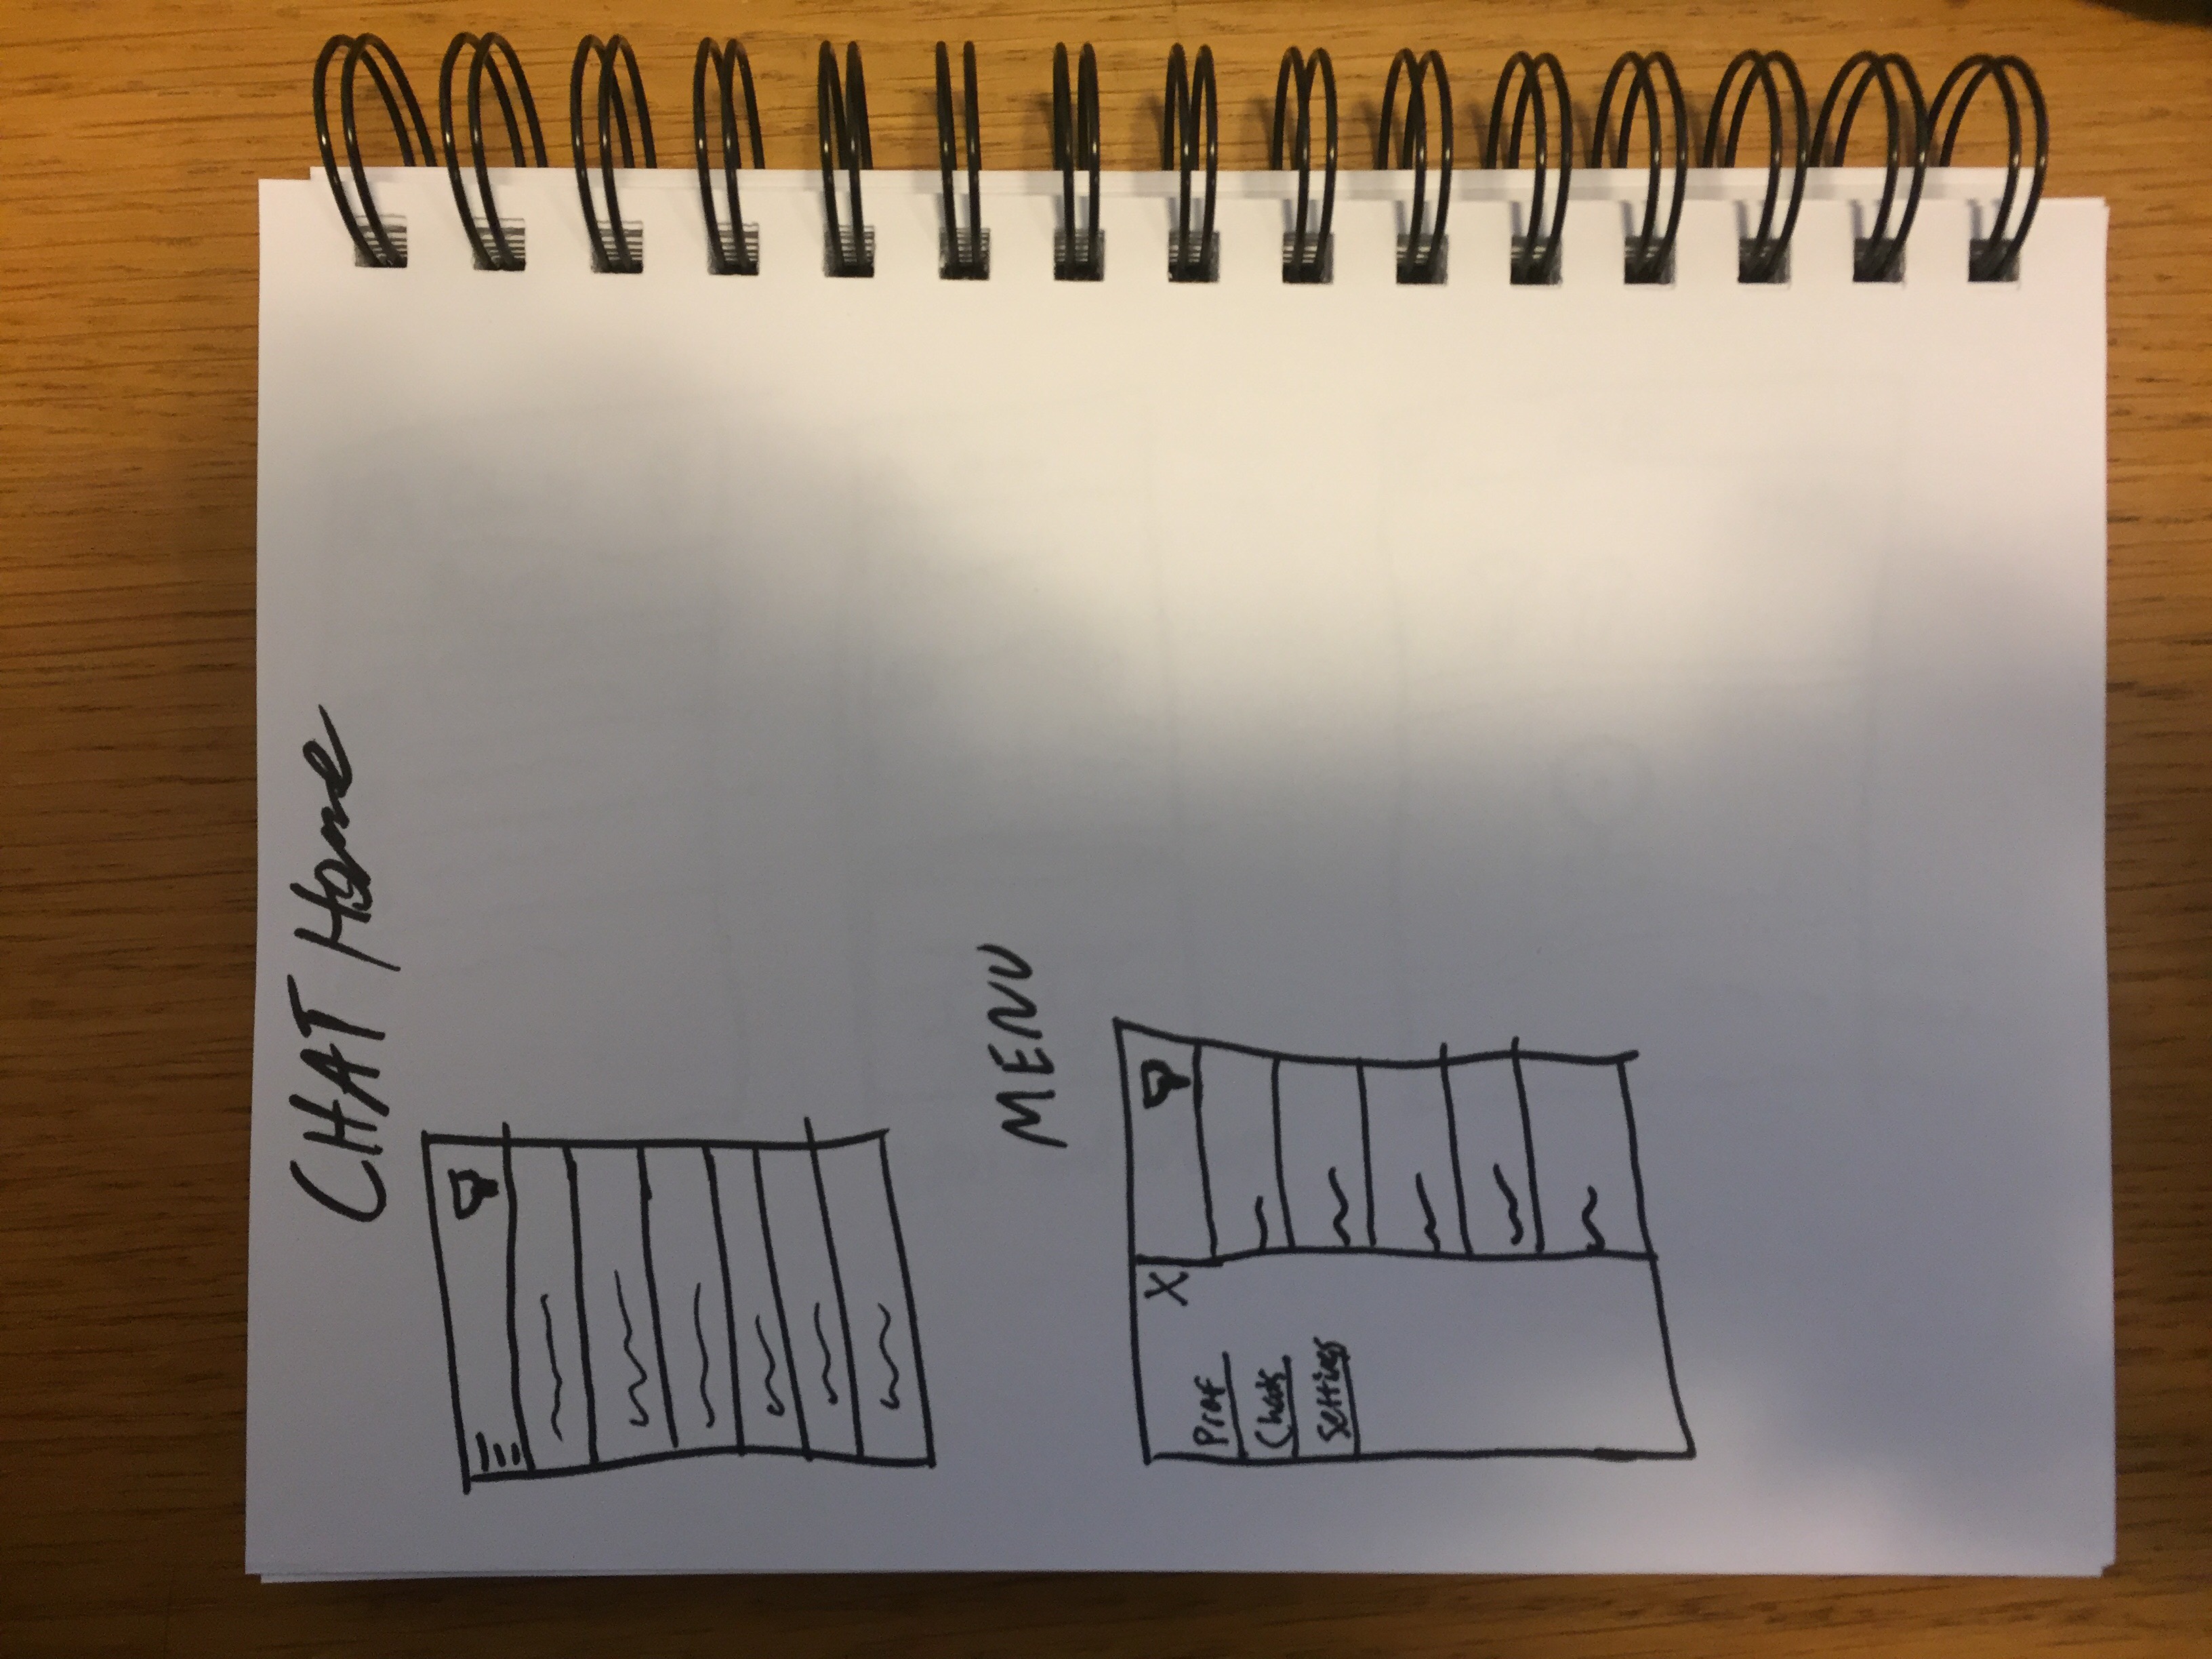 CHAT Home
MENU
X
Prof
Chats
Settings